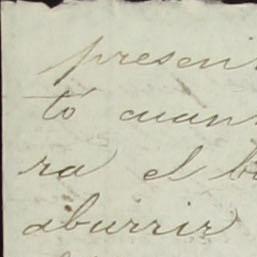 presen
tó cuan
ra el b
aburrir